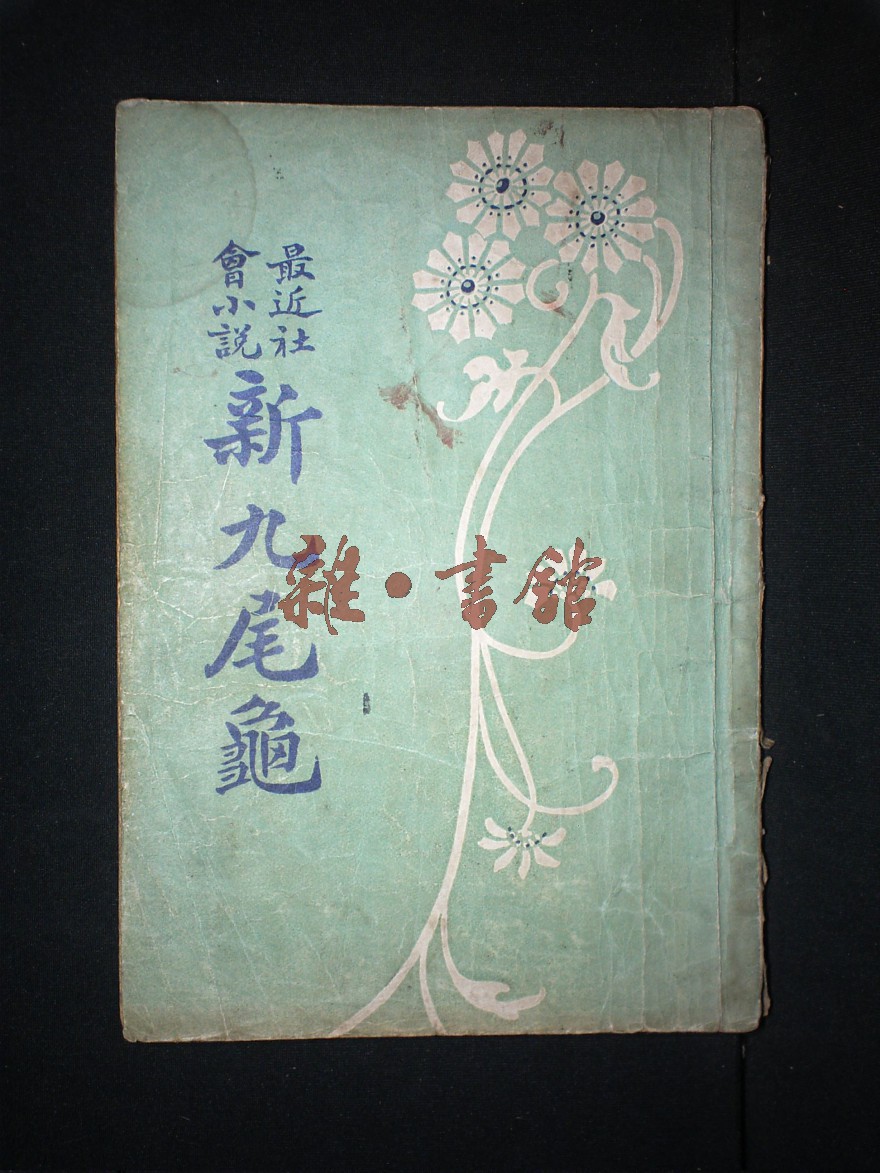 最近社
會小説
新九尾龜
雜·書館